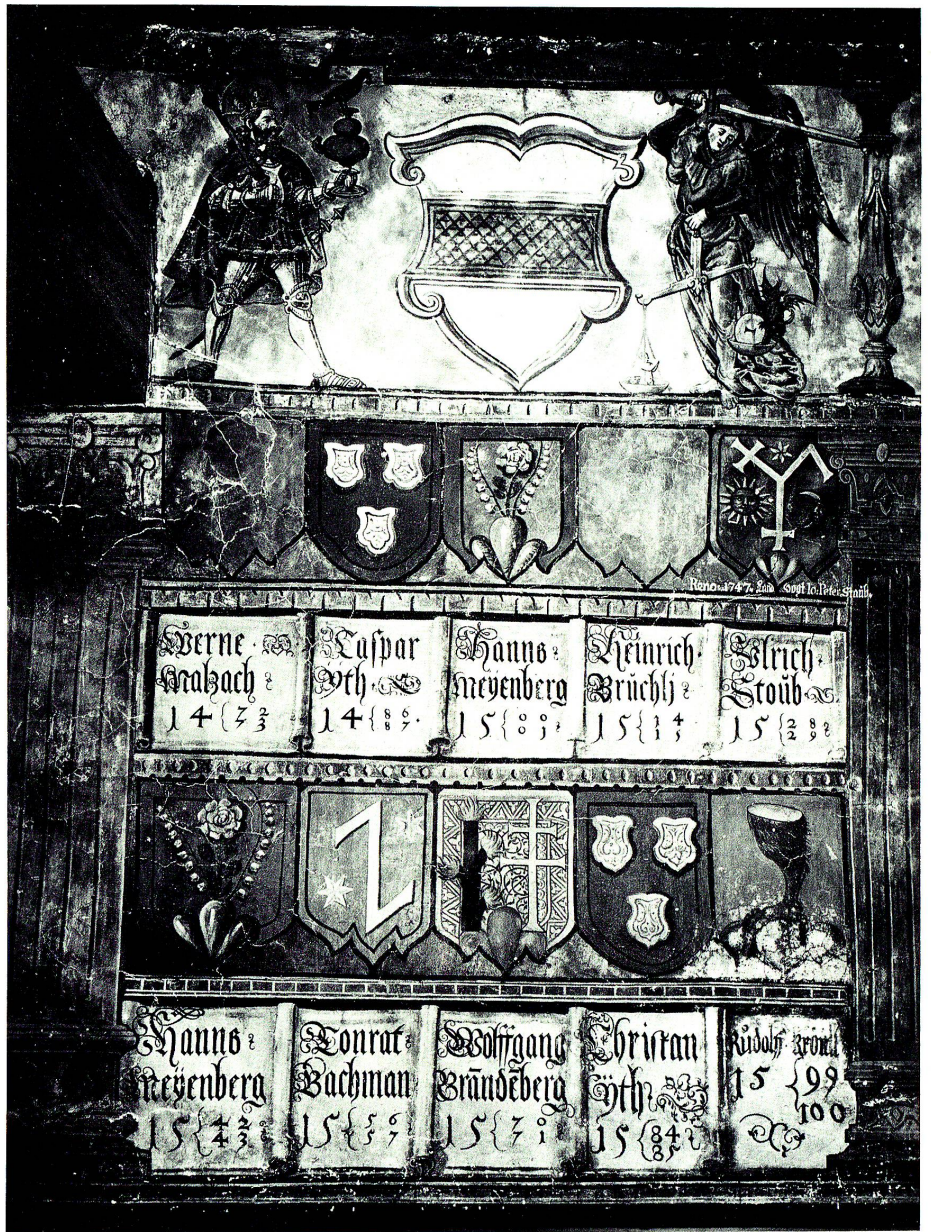 Reno: 1747. Land Vogt Io. Peter Staub.
Werne
Malzach
14{72 73
Caspar
Yth
14{86 87.
Hanns
Meÿenberg
15{00 01
Heinrich
Brůchlj
15{14 15
Vlrich
Stoůb
15{28 29
Hanns
Meÿenberg
15{42 43
Conrat
Bachman
15{56 57
Wolffgang
Brandēberg
15{70 71
Christan
Ÿth
15{84 85
Růdolff
15{99
100